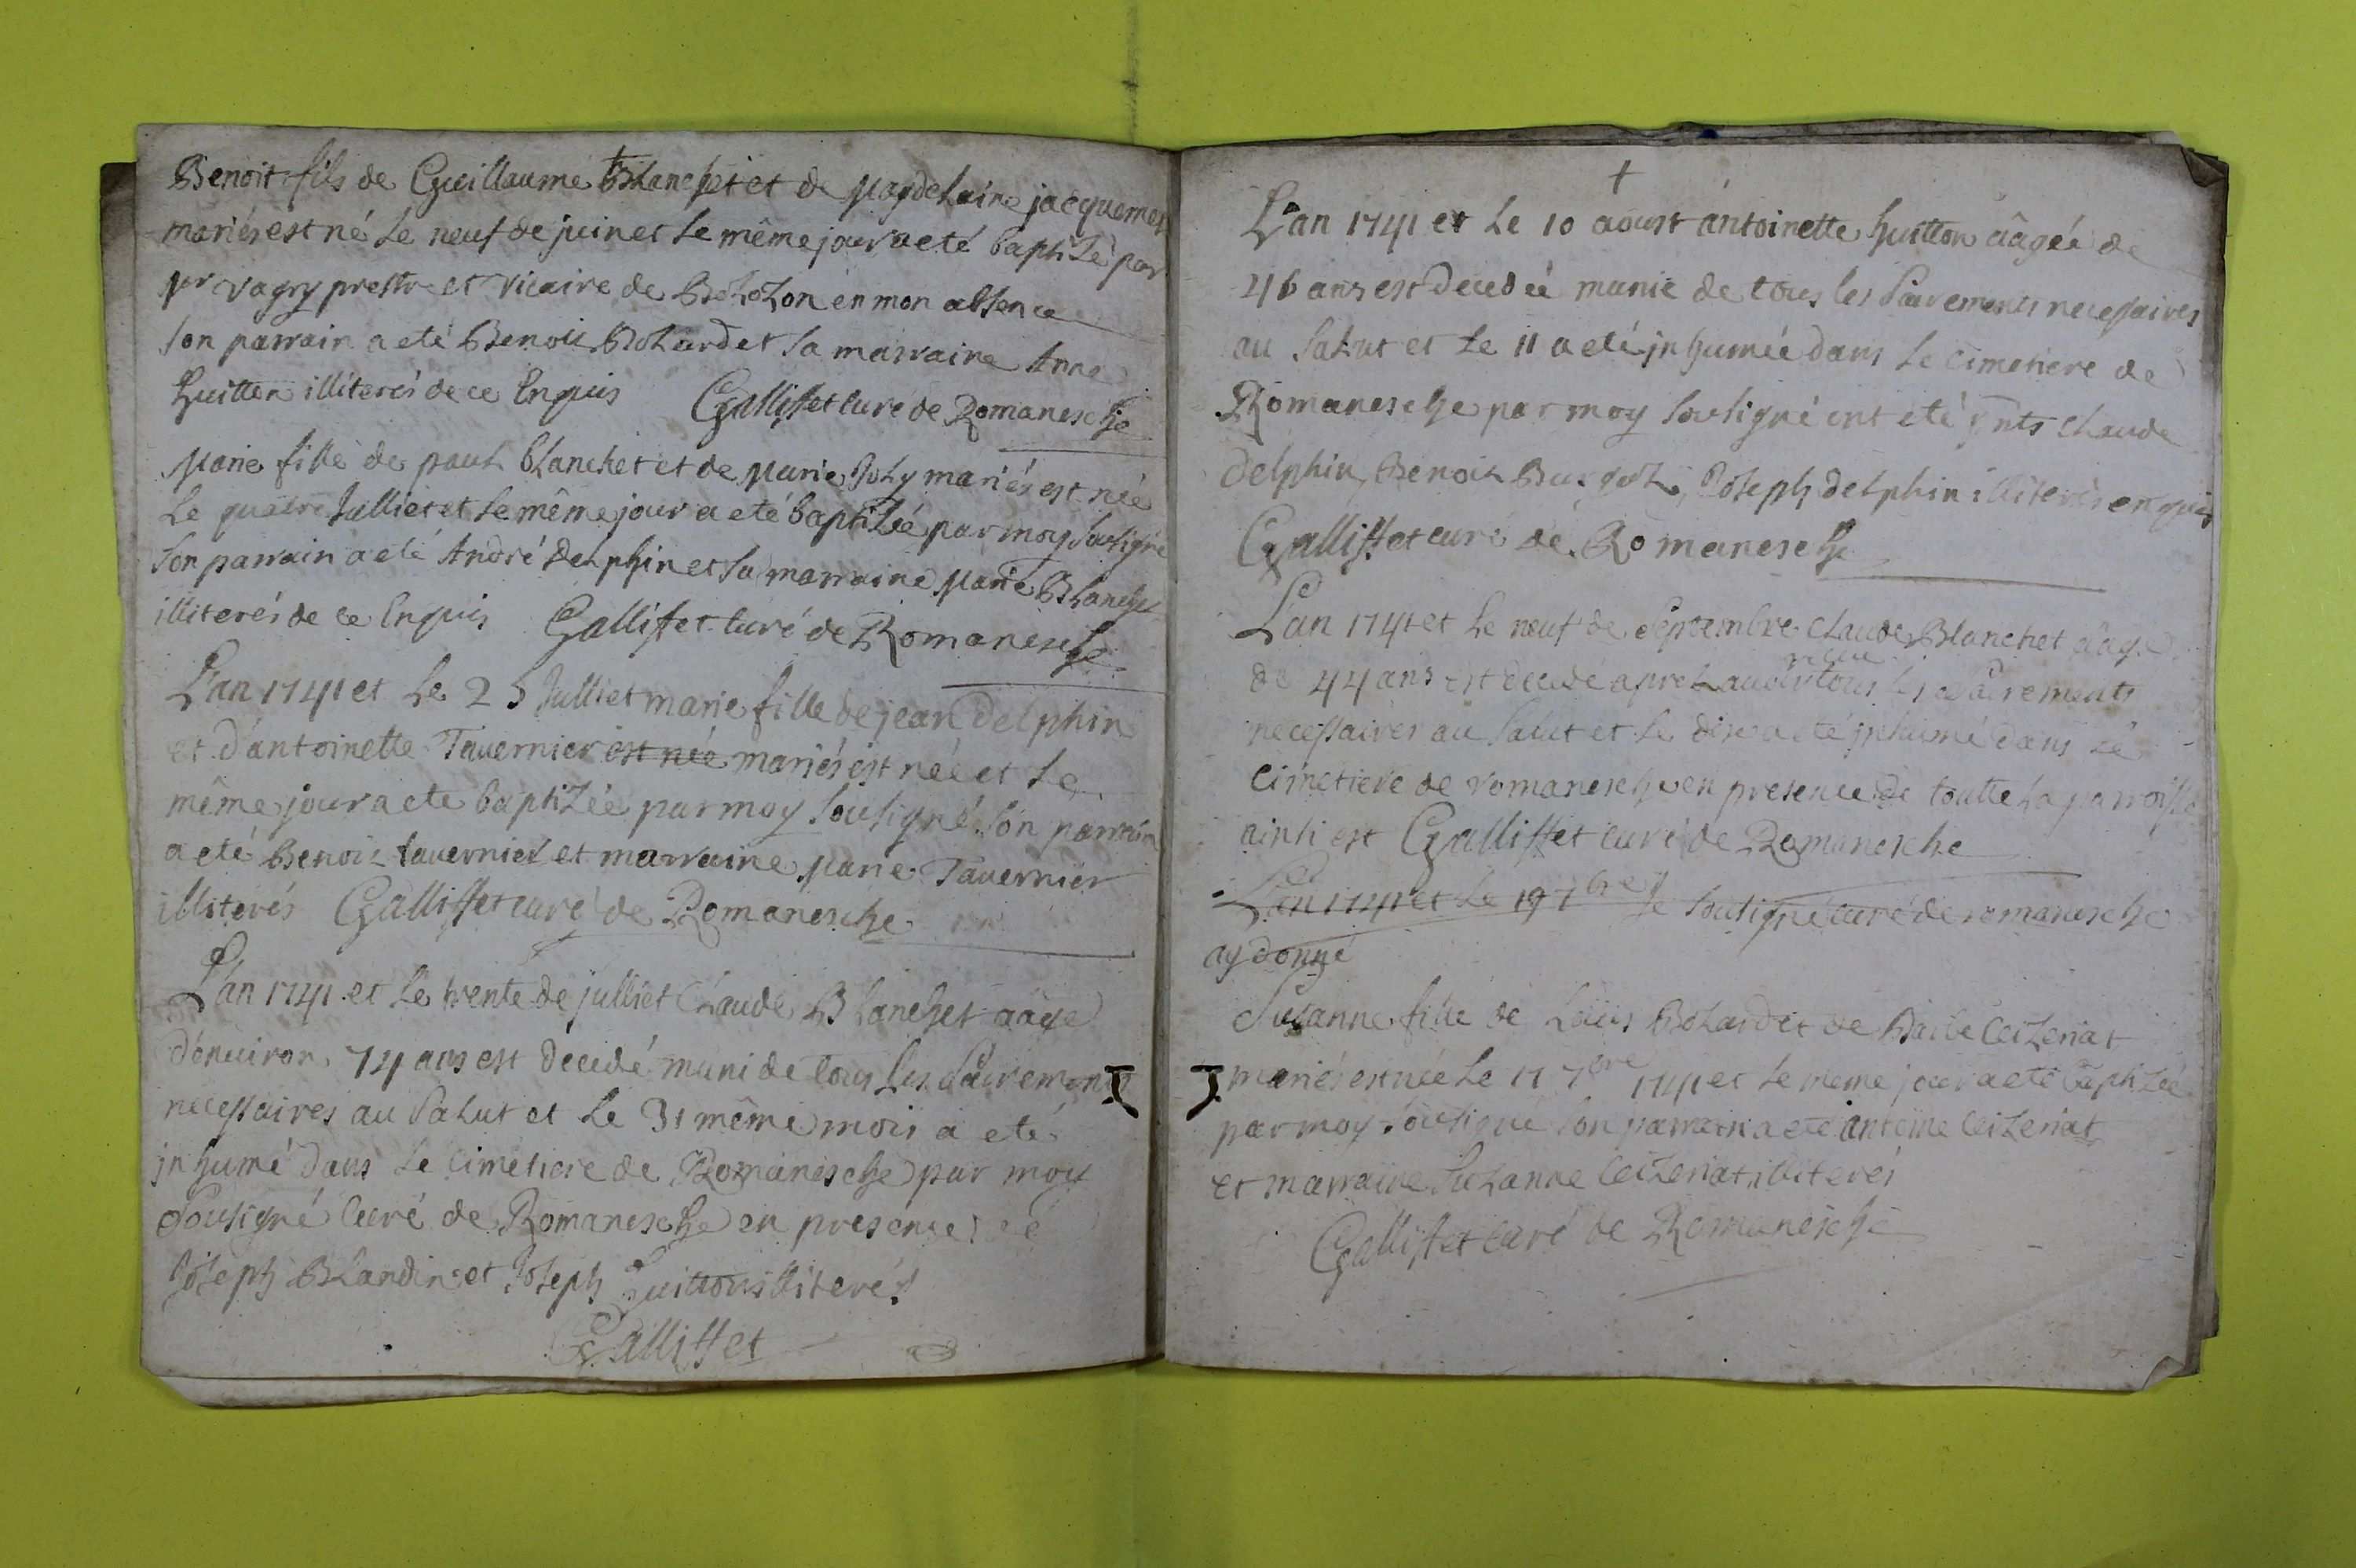 Benoit fils de Guillaume Blanchet et de Magdelaine jacquemet
mariés est né le neuf de juin et le même jour a eté baptizé par
Mr vagry prestre et vicaire de Bolozon en mon absence
son parrain a eté Benoit Bolard et sa marraine Anne
huitton illiterés de ce Enquis Galliffet curé de Romanesche
Marie fille de paul blanchet et de Marie Joly mariés est née
le quatre Julliet et le même jour a eté baptizée par moy sousigné
son parrain a eté André delphin et sa marraine Marie Blanchet
illiterés de ce Enquis Galliffet curé de Romanesche
L'an 1741 et le 25 Julliet marie fille de jean delphin
et d'antoinette Tavernier est née mariés est née et le
même jour a eté baptizée par moy sousigné son parrain
a eté Benoit tavernier et marraine Marie Tavernier
illiterés Galliffet curé de Romanesche
L'an 1741 et le trente de julliet Claude Blanchet aâgé
d'environ 74 ans est décedé muni de tous les Sacrements
necessaires au salut et le 31 même mois a eté
jnhumé dans le cimetiere de Romanesche par moy
Sousigné curé de Romanesche en presence de
Joseph Blandin et Joseph huitton illiterés
Galliffet
†
L'an 1741 et le 10 aoust antoinette huitton aâgée de
46 ans est décedée munie de tous les Sacrements necessaires
au salut et le 11 a eté jnhumée dans le cimetiere de
Romanesche par moy sousigné ont eté pnts Claude
delphin, Benoit, Joseph delphin illiterés enquis
Galliffet curé de Romanesche
L'an 1741 et le neuf de septembre Claude Blanchet aâgé
de 44 ans est decedé aprez avoir receu tous les Sacrements
necessaires au salut et le dix a eté jnhumé dans le
cimetiere de romanesche en presence de toutte la parroisse
ainsi est Galliffet curé de Romanesche
L'an 1741 et le 19 7bre je sousigné curé de romanesche
ay donné
Suzanne fille de Louis Bolard et de Barbe Ceizeriat
mariés est née le 17 7bre 1741 et le meme jour a eté baptizée
par moy sousigné son parrain a eté antoine Ceizeriat
et marraine Suzanne Ceizeriat illiterés
Galliffet curé de Romanesche